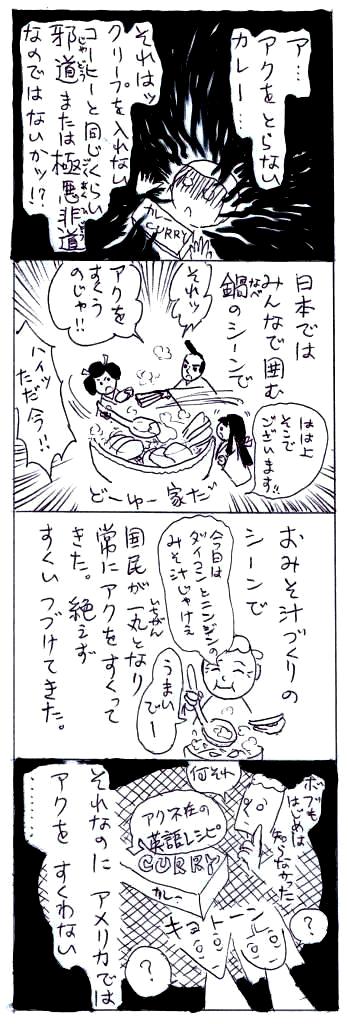 ア…
アクをとらない
カレー…
それはッ
クリープを入れない
コーヒーと同じくらい
邪道または極悪非道
じゃどう
ごくあくひどう
なのではないかッ!?
カレー
CURRY
日本では
みんなで囲む
鍋のシーンで
なべ
それッ
アクを
すくう
のじゃ!!
はは上
そこで
ございます!!
ハイッ
ただ今!!
どーゆー家だ
おみそ汁づくりの
シーンで
今日は
ダイコンとニンジンの
みそ汁じゃけえ
うまい
でー
国民が一丸となり
いちがん
常にアクをすくって
きた。絶えず
すくいつづけてきた。
ボブも
はじめは
知らなかった
何それ
アク不在の
英語レシピ
CURRY
カレー
キョトーン
?
?
それなのにアメリカでは
アクをすくわない
………